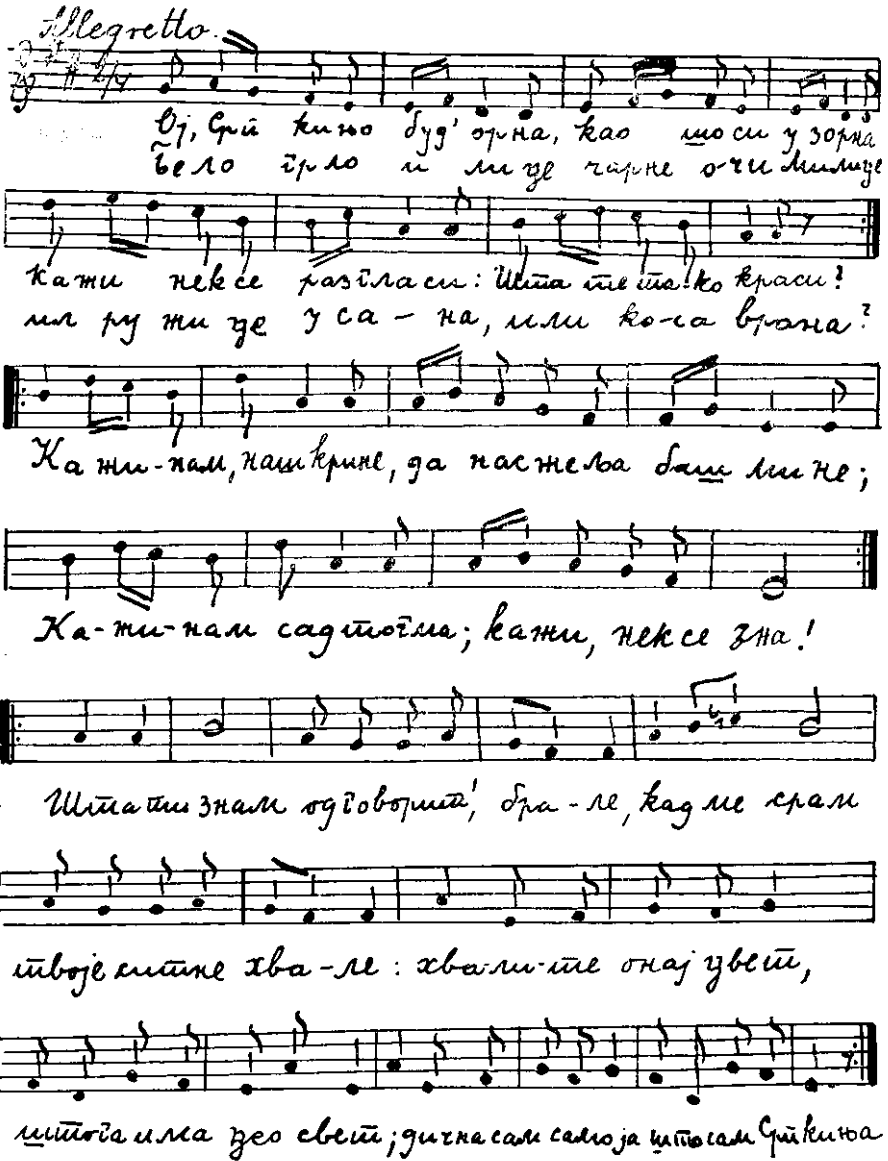 Allegretto.
2/4
Ој, Српкињо буд' орна, као што си у зорна
Бело грло и лице чарне очи милице
Кажи нек се разгласи: Шта те тако краси?
ил ружице уса – на, или ко-са врана?
Ка жи-нам, наш крине, да нас жеља баш мине;
Ка-жи-нам сад тога; кажи, нек се зна!
Шта ти знам одговорит', бра-ле, кад ме срам
твоје ситне хва-ле: хва-ли-те онај цвет,
штога има цео свет; дична сам само ја што сам Српкиња